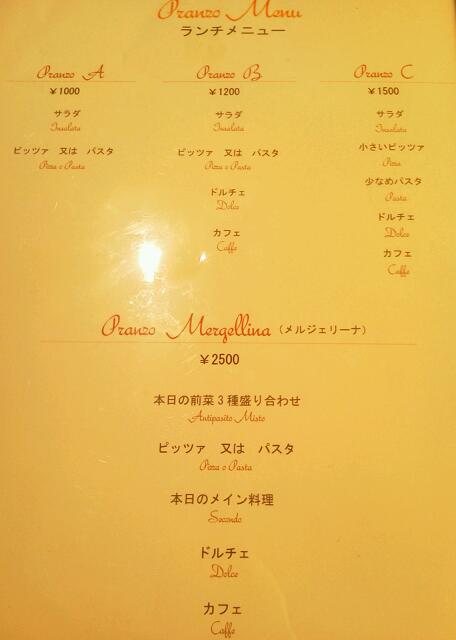 Pranzo Menu
ランチメニュー
Pranzo A
￥1000
サラダ
Insalata
ピッツァ 又は パスタ
Pizza o Pasta
Pranzo B
￥1200
サラダ
Insalata
ピッツァ 又は パスタ
Pizza o Pasta
ドルチェ
Dolce
カフェ
Caffe
Pranzo C
￥1500
サラダ
Insalata
小さいピッツァ
Pizza
少なめパスタ
Pasta
ドルチェ
Dolce
カフェ
Caffe
Pranzo Mergellina (メルジェリーナ)
￥2500
本日の前菜3種盛り合わせ
Antipasito Misto
ピッツァ 又は パスタ
Pizza o Pasta
本日のメイン料理
Secondo
ドルチェ
Dolce
カフェ
Caffe